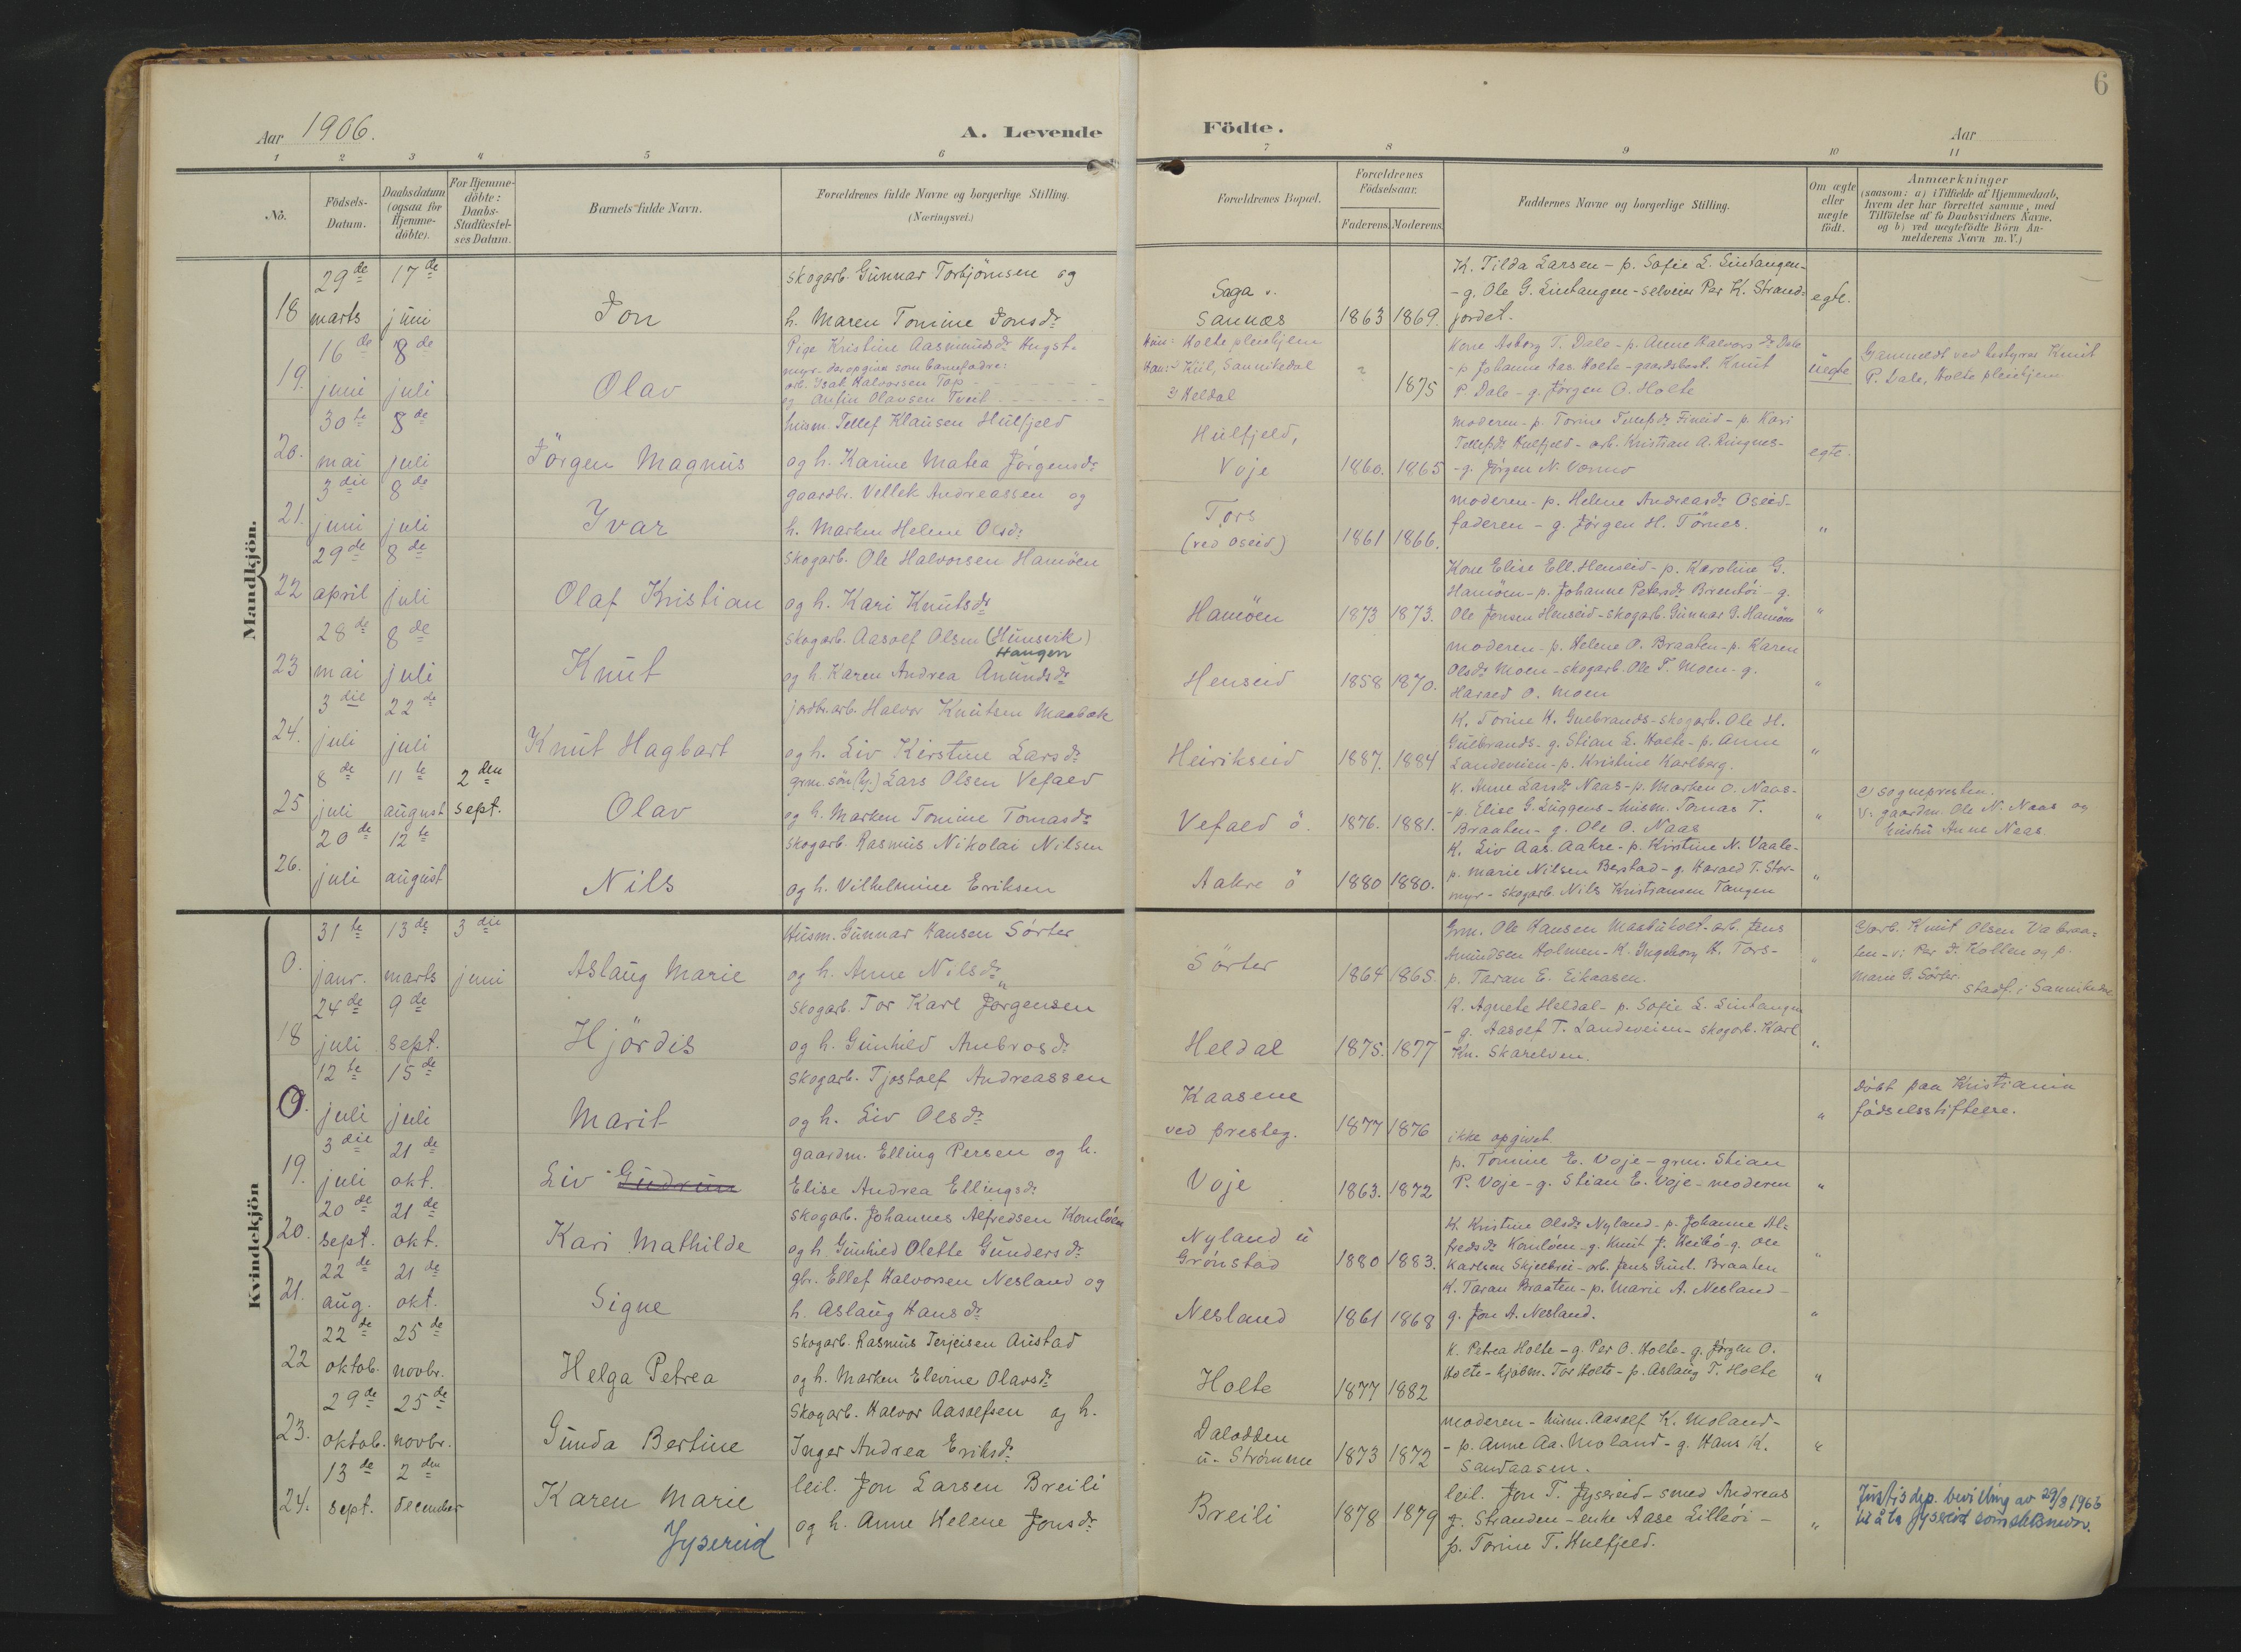 6
Aar 1906.
A. Levende
Födte.
Aar
1 2 3 4 5 6 7 8 9 10 11
No.
Födsels-Datum.
Daabsdatum (ogsaa for Hjemme-döbte).
For Hjemme-döbte: Daabs-Stadfæstel-ses Datum.
Barnets fulde Navn.
Forældrenes fulde Navne og borgerlige Stilling. (Næringsvei.)
Forældrenes Bopæl.
Forældrenes Födselsaar.
Faderens. Moderens.
Faddernes Navne og borgerlige Stilling.
Om ægte eller uægte födt.
Anmærkninger
(saasom: a) i Tilfælde af Hjemmedaab,
hvem der har forrettet samme, med
Tilföielse af to Daabsvidners Navne.
og b) ved uægtefödte Börn An-
melderens Navn m. V.)
Mandkjön.
18 29de marts 17de juni
Jon
skogarb. Gunnar Torbjörnsen og
h. Maren Tomine Jonsdr
Saga v.
Sannes
1863 1869.
K. Tilda Larsen - p. Sofie L. Lintangen-
- g. Ole G. Lintangen - selveier Per K. Strand-
jordet.
egte.
19. 16de juni 8de juli
Olav
Pige Kristine Aasmundsdr Hugst-
myr. der opgiver som barnefadre:
arb. Isak Halvorsen Tap
og Anfin Olausen Tveit
Hun: Holte pleiehjem
Han: 1) Kiil, Sannikedal
2) Heldal
? 1875
Kone Asborg T. Dale - p. Anne Halvorsdr Dale
- p Johanne Aas. Holte - gaardsbest. Knut
P. Dale - g. Jörgen O. Holte
uegte
Ganmeldt ved bestyrer Knut
P. Dale, Holte pleiehjem
20. 30te mai 8de juli
Jörgen Magnus
husm. Tellef Klausen Hulfjeld
og h. Karine Matea Jörgensdr
Hulfjeld,
Voje
1860. 1865
moderen - p. Torine Tellefsdr - p. Kari
Tellefsdr Hulfjeld - arb. Kristian A. Ringnes-
- g. Jörgen N.
egte.
21. 3die juni 8de juli
Yvar
gaardbr. Vellek Andreassen og
h. Marken Helene Olsdr
Tors
(ved Oseid)
1861 1866.
moderen - p. Helene Andreasdr Oseid-
faderen - g. Jörgen H. Törnes.
"
22 29de april 8de juli
Olaf Kristian
skogarb. Ole Halvorsen Hamöen
og h. Kari Knutsdr
Hamöen
1873 1873.
Kone Elise Ell. Henseid - p. Karoline G.
Hamöen - p. Johanne Petersdr Brentöi - g.
Ole Jensen Henseid - skogarb. Gunnar G. Hamöen
"
23 28de mai 8de juli
Knut
skogarb. Aasolf Olsen (Hunsvik)
Haugen
og h. Karen Andrea Anundsdr
Henseid
1858 1870.
moderen - p. Helene O. Braaten - p. Karen
Olsdr Moen - skogarb. Ole T. Moen - g.
Harald O. Moen
"
24. 3die juli 22de juli
Knut Hagbart
jordbr.arb. Halvor Knutsen Maabæk
og h. Liv Kirstine Larsdr
Heirikseid
1887. 1884
K. Torine H. Gulbrands - skogarb. Ole H.
Gulbrands - g. Stian L. Holte - p. Anne
Landeveien - p. Kristine Karlberg.
"
25 8de juli 11te august 2den sept.
Olav
grm. sön (by.) Lars Olsen Vefald
og h. Marken Tomine Tomasdr
Vefald ö.
1876. 1881.
K. Anne Larsdr Naas - p. Marken O. Naas-
- p. Elise G. Luggens - husm. Tomas T.
Braaten - g. Ole O. Naas
"
a) sognepresten.
v: gaardm. Ole N. Naas og
hustru Anne Naas.
26. 20de juli 12te august
Nils
skogarb. Rasmus Nikolai Nilsen
og h. Vilhelmine Eriksen
Aakre ö
1880 1880.
K. Liv Aas. Aakre - p. Kirstine N. Vaale-
p. Marie Nilsen Berstad - g. Harald T. Stor-
myr - skogarb. Nils Kristiansen Tangen
"
Kvindekjön
0. 31te janr. 13de marts 3die juni
Aslaug Marie
Husm. Gunnar Hansen Sörter
og h. Anne Nilsdr
Sörter
1864 1865.
Grm. Ole Hansen - arb. Jens
Amundsen Holmen - K. Ingeborg K. Tors-
p. Taran E. Eikaasen.
"
Gjarb. Knut Olsen Vabraa-
ten - v: Per D. Kollen og p.
Marie G. Sörter.
stadf. i Sannikedal
18 24de juli 9de sept.
Hjördis
skogarb. Tor Karl Jörgensen
og h. Gunhild Ambrosdr
Heldal
1875. 1877
K. Agnete Heldal - p. Sofie L. Lintangen
- g. Aasolf T. Landeveien - skogarb. Karl
Kn. Skarelven.
"
0. 12te juli 15de juli
Marit
skogarb. Tjostolf Andreassen
og h. Liv Olsdr
Kaasene
ved presteg.
1877 1876
ikke opgivet
"
Döbt paa Kristiania
födselsstiftelse.
19. 3die juli 21de okt.
Liv Gudrun
gaardm. Elling Persen og h.
Elise Andrea Ellingsdr
Voje
1863. 1872
p. Tomine E. Voje - grm. Stian
P. Voje - g. Stian E. Voje - moderen
"
20. 20de sept. 21de okt.
Kari Mathilde
skogarb. Johannes Alfredsen Kornlöen
og h. Gunhild Olette Gundersdr
Nyland u
Grönstad
1880 1883.
K. Kristine Olsdr Nyland - p. Johanne Al-
fredsdr Kornlöen - g. Knut J. - g. Ole
Karlsen Skjelbrei - arb. Jens Gunt. Braaten
"
21. 22de aug. 21de okt.
Signe
gbr. Ellef Halvorsen Nesland og
h. Aslaug Hansdr
Nesland
1861 1868
K. Taran Braaten - p. Marie A. Nesland -
g. Jon A. Nesland.
"
22 22de oktob. 25de novbr.
Helga Petrea
skogarb. Rasmus Terjeisen Austad
og h. Marken Elevine Olavsdr
Holte
1877 1882
K. Petrea Holte - g. Per O. Holte - g. Jörgen O.
Holte - kjöbm. Tor Holte - p. Aslaug T. Holte
"
23. 29de oktob. 25de novbr.
Gunda Bertine
skogarb. Halvor Aasolfsen og h.
Inger Andrea Eriksdr
Dalodden
u. Strömme
1873 1872
moderen - husm. Aasolf K. Moland-
- p. Anne Aa. Moland - g. Hans K.
Sandaasen.
"
24. 13de sept. 2den december
Karen Marie
Jysereid
leil. Jon Larsen Breili
og h. Anne Helene Jonsdr
Breili
1878 1879
leil. Jon T. Jysereid - smed Andreas
J. Stranden - enke Aase Lillöi -
p. Torine T. Hulfjeld.
"
Justisdep. bevilling av 29/8 1966
til å ta Jysereid som slektsnavn.